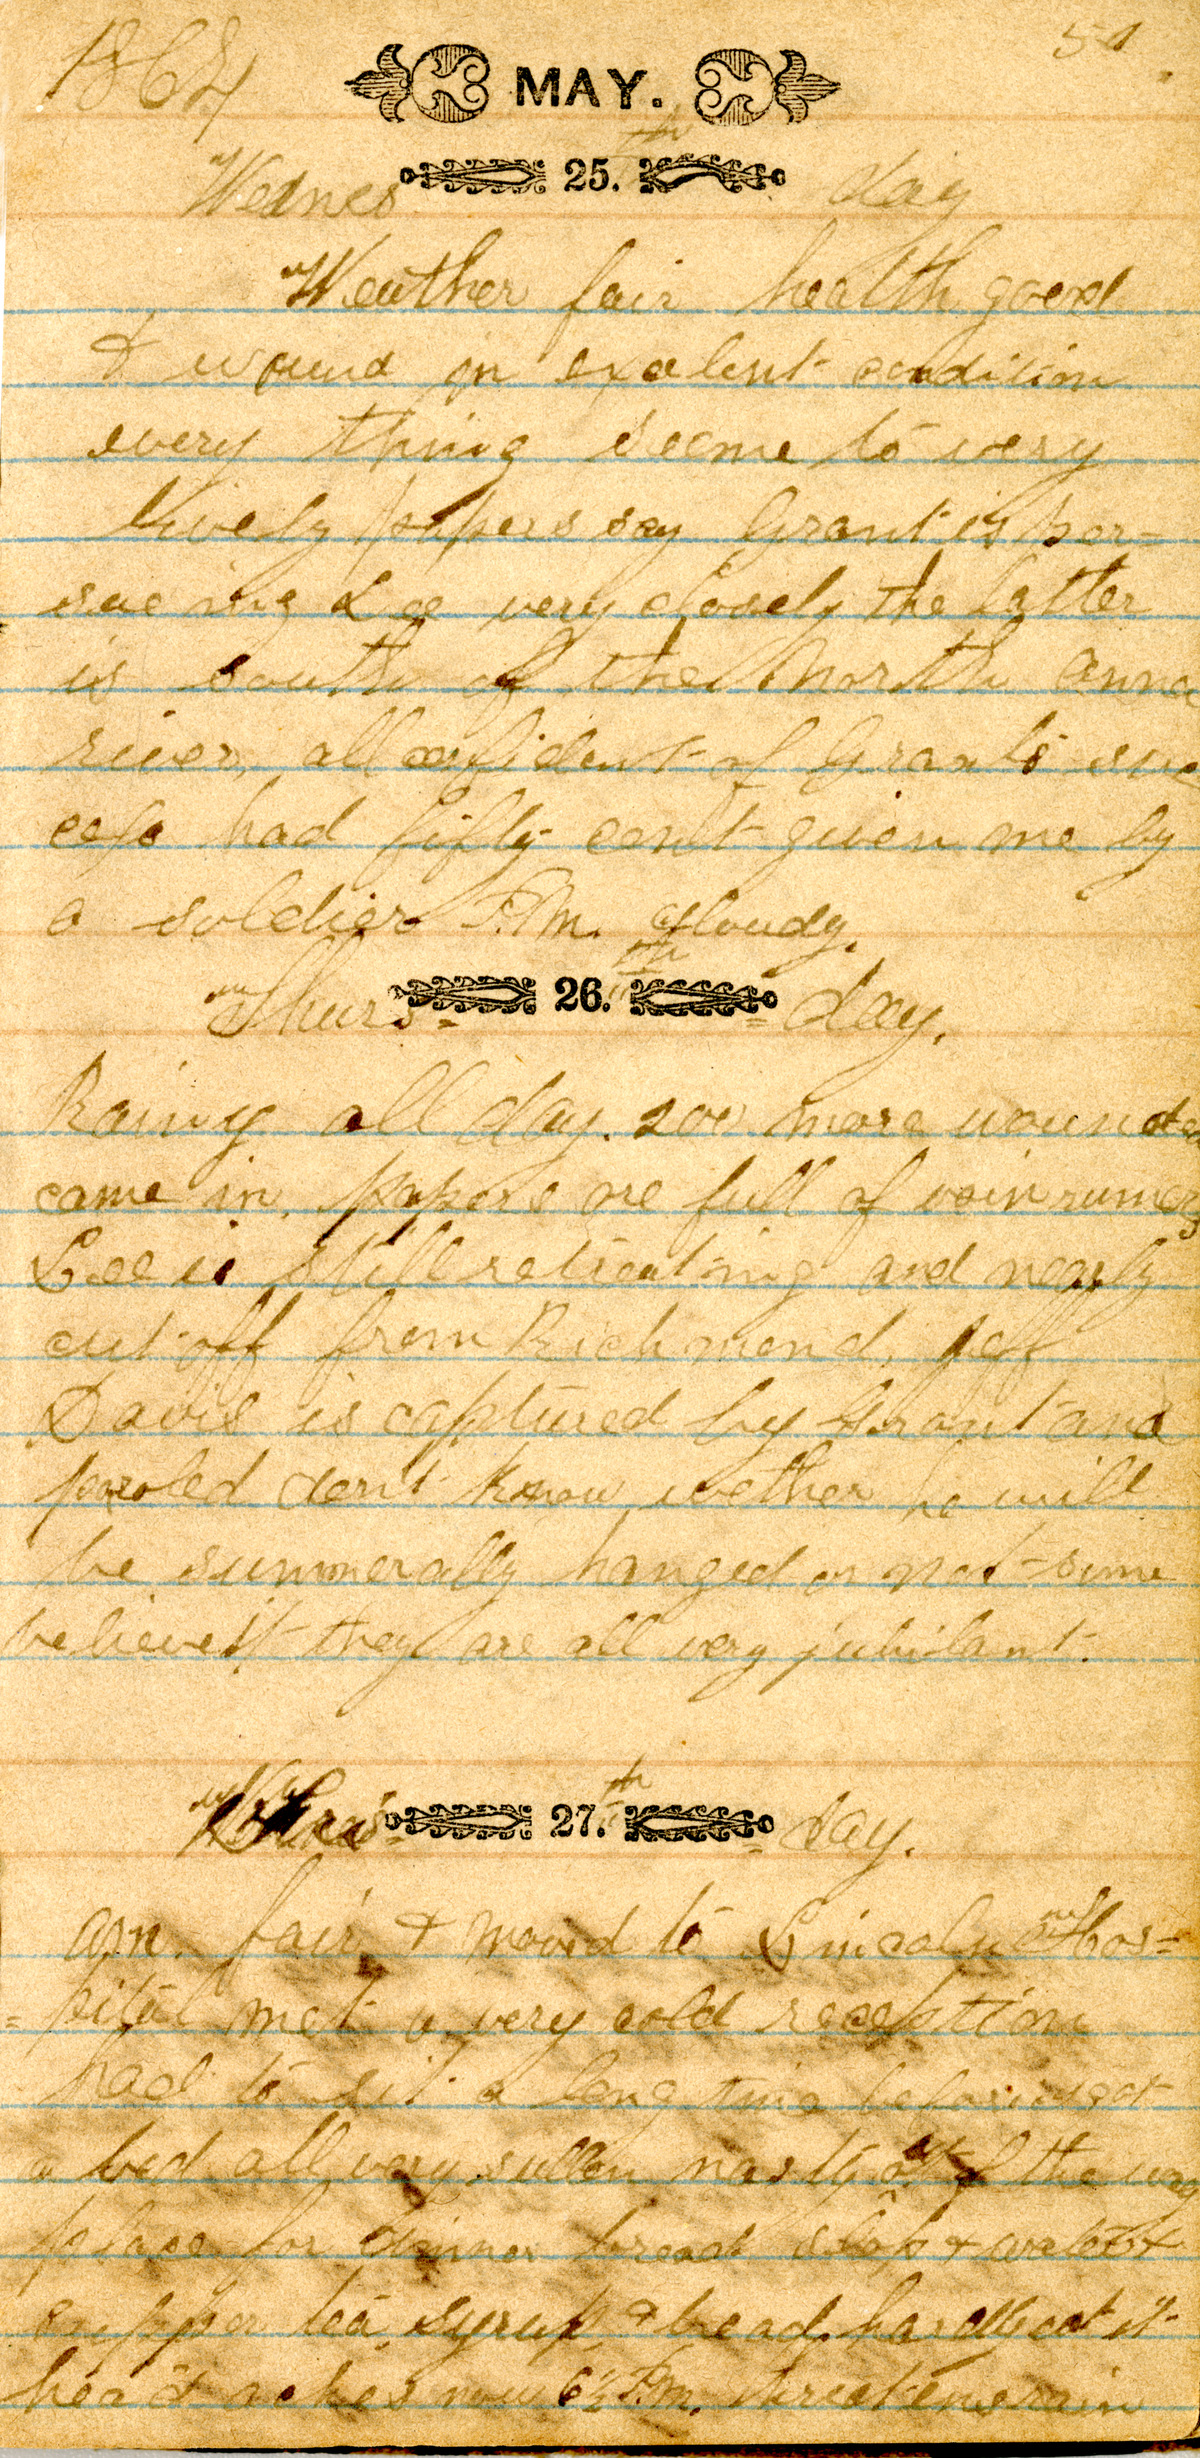 1864 51
MAY.
Wednes 25.th day
Weather fair health good
& wound in exelent condition
every thing seeme to very
lively papers say Grant is per=
sueing Lee very closely the latter
is south of the North anna
river, all confident of Grants suc
cess had fifty cent given me by
a soldier P.M. cloudy.
Thurs= 26.th =day.
Rainy all day. 200 more wounded
came in. papers are full of vain rumers
Lee is still retreating and nearly
cut off from Richmond, Jeff
Davis is captured by Grant and
paroled dont know wether he will
be summerally hanged or not some
believe it they are all very jubilant.
27.th =day.
am. fair & moved to Lincoln Hos=
=pital met a very cold reception
had to sit a long time before I got
a bed all very sullen nasty out of the way
place for dinner bread slop & water
supper tea syrup & bread, hardly eat it
head aches now 6½ P.m. threatens rain